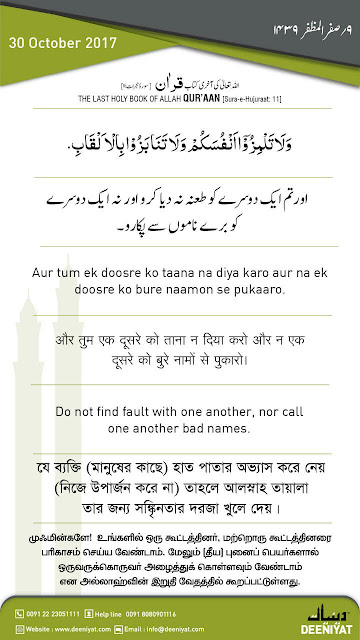 30 October 2017
۹/ صفر المظفر ۱۴۳۹
اللہ تعالیٰ کی آخری کتاب قرآن [سورۂ حجرات:۱۱]
THE LAST HOLY BOOK OF ALLAH QUR'AAN [Sura-e-Hujuraat: 11]
وَلَا تَلْمِزُوْٓا اَنْفُسَكُمْ وَلَا تَنَابَزُوْا بِالْاَلْقَابِ.
اور تم ایک دوسرے کو طعنہ نہ دیا کرو اور نہ ایک دوسرے
کو برے ناموں سے پکارو۔
Aur tum ek doosre ko taana na diya karo aur na ek
doosre ko bure naamon se pukaaro.
और तुम एक दूसरे को ताना न दिया करो और न एक
दूसरे को बुरे नामों से पुकारो।
Do not find fault with one another, nor call
one another bad names.
যে ব্যক্তি (মানুষের কাছে) হাত পাতার অভ্যাস করে নেয়
(নিজে উপার্জন করে না) তাহলে আলস্নাহ তায়ালা
তার জন্য সঙ্কিনতার দরজা খুলে দেয় ।
முஃமின்களே! உங்களில் ஒரு கூட்டத்தினர், மற்றொரு கூட்டத்தினரை
பரிகாசம் செய்ய வேண்டாம். மேலும் (தீய) புனைப் பெயர்களால்
ஒருவருக்கொருவர் அழைத்துக் கொள்ளவும் வேண்டாம்
என அல்லாஹ்வின் இறுதி வேதத்தில் கூறப்பட்டுள்ளது.
0091 22 23051111 Help line 0091 8080901116
Website : www.deeniyat.com Email : info@deeniyat.com
دینیات
DEENIYAT